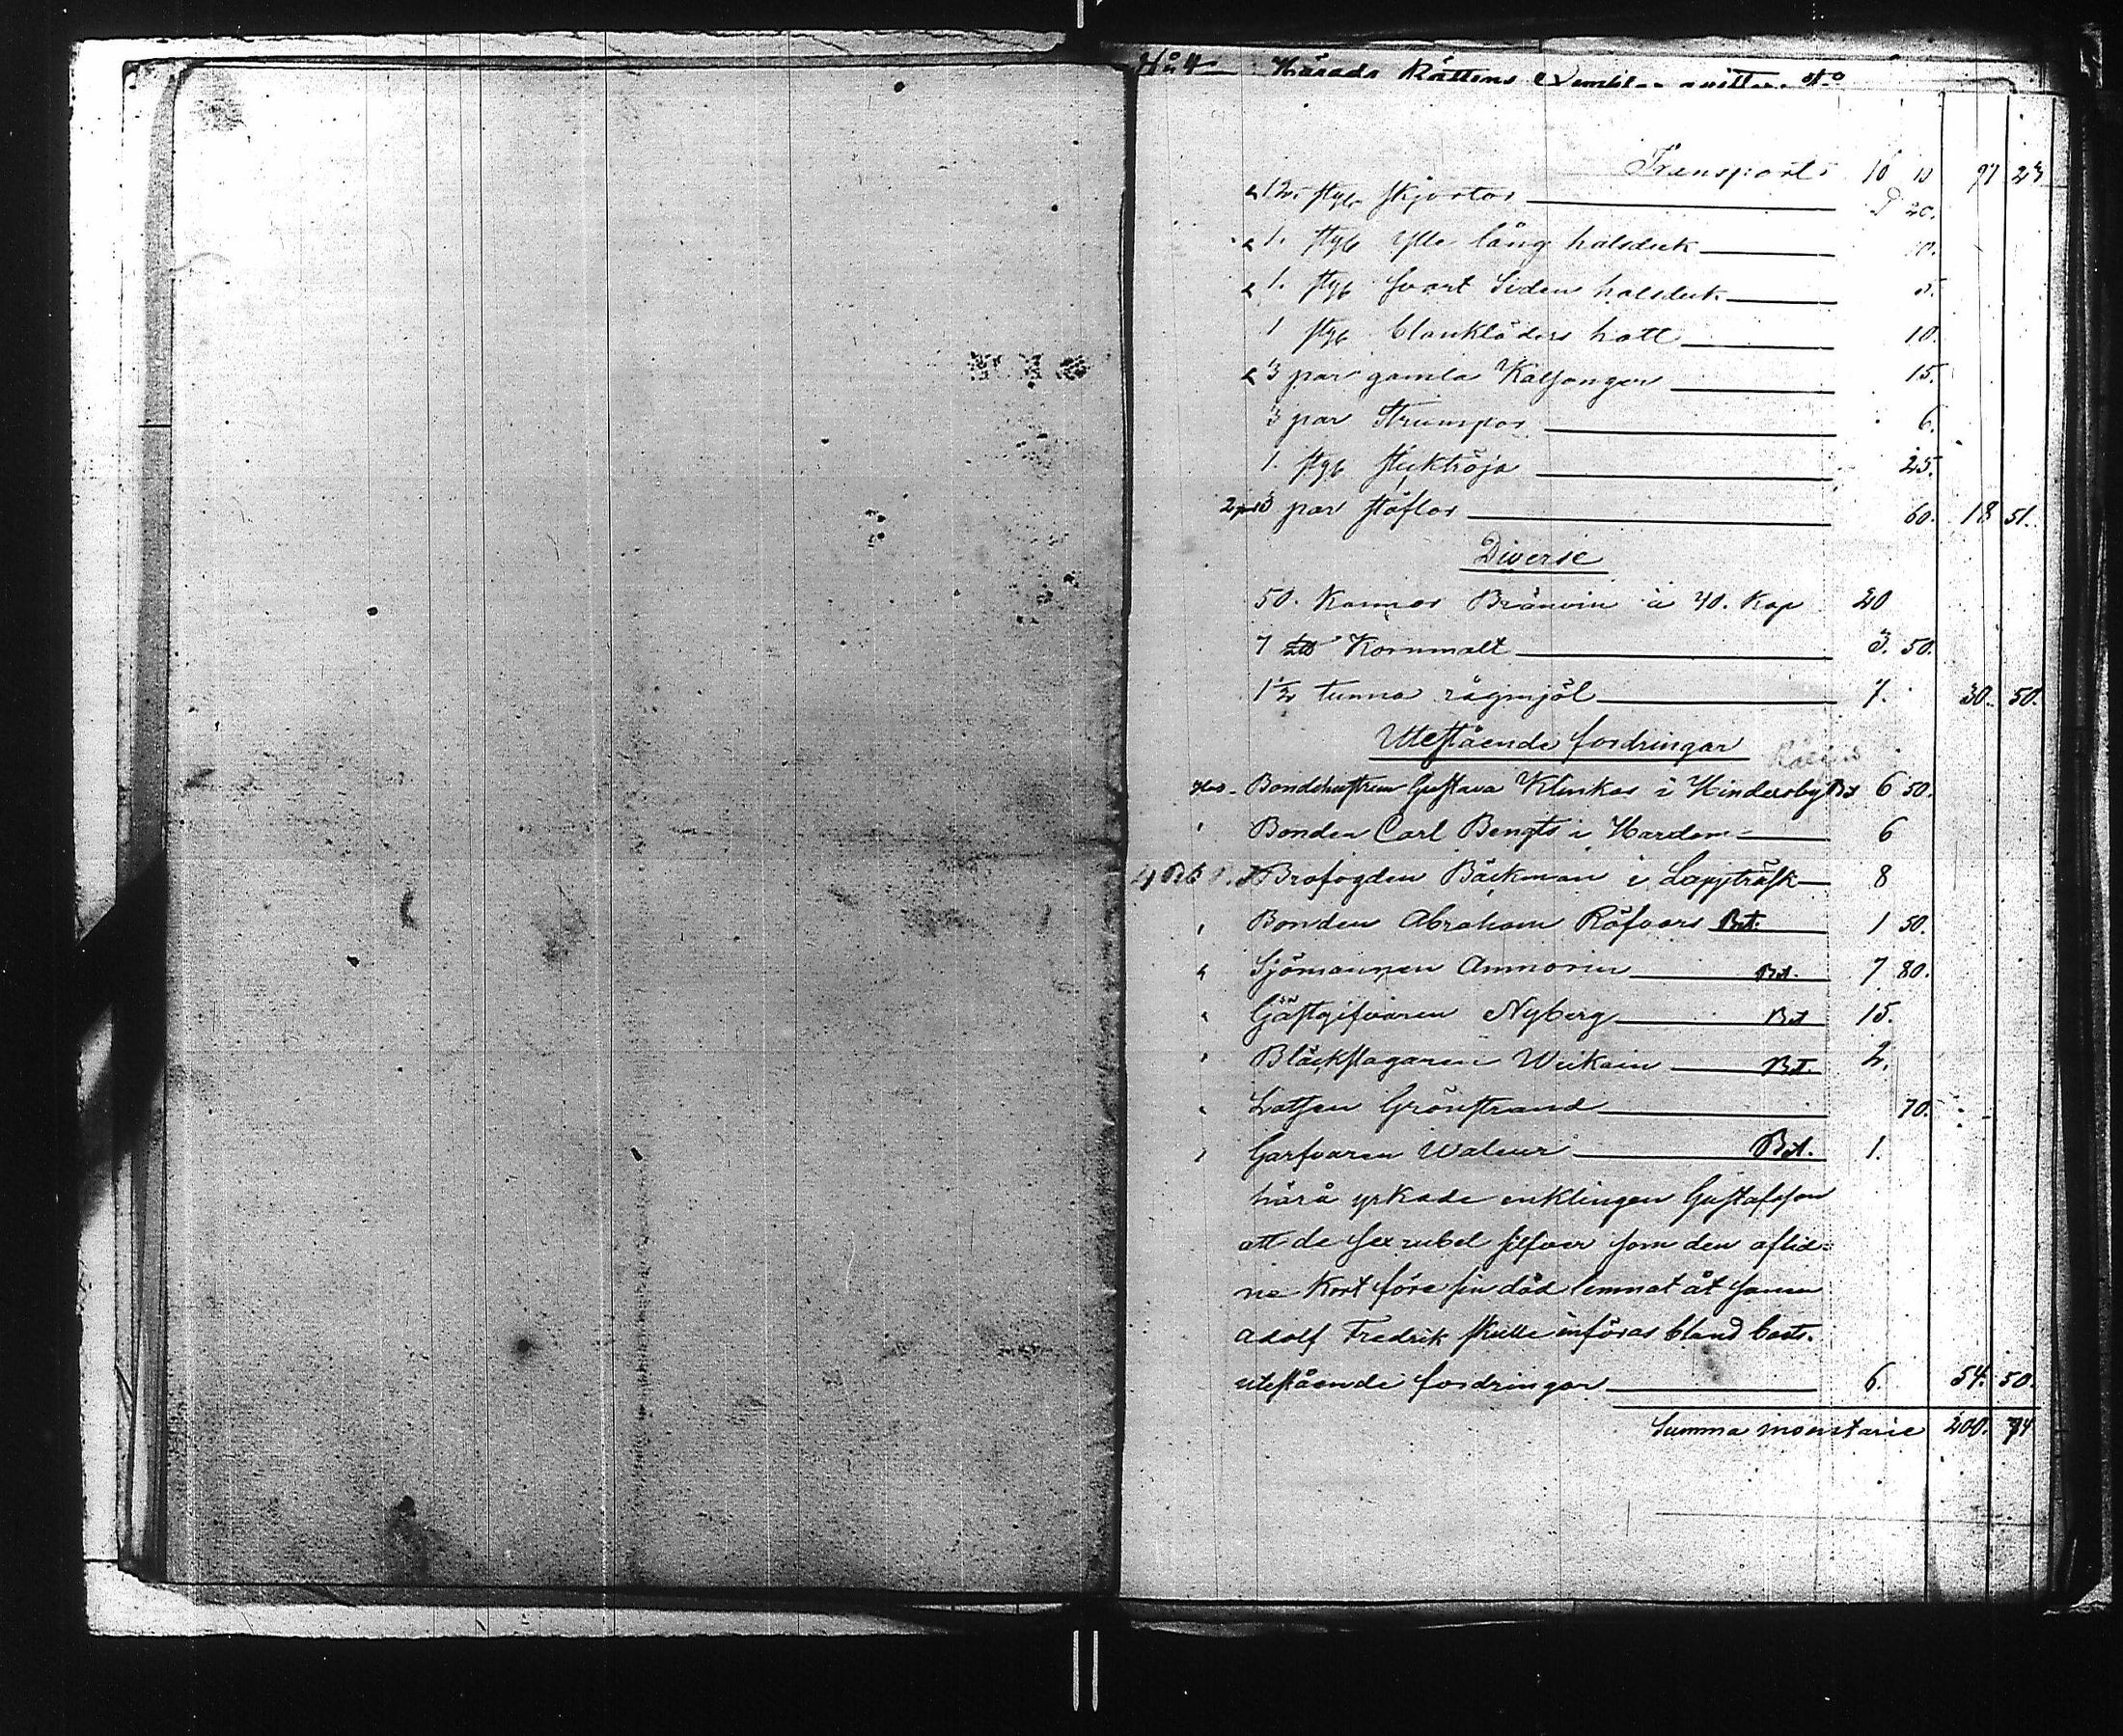 No 4 Härads Rättens
Transport 10 10 97 23
12. styk skjortor 20.
1. styk ylle lång halsduk 10.
1. styk svart Siden halsduk 5.
1 styk blankläders hatt 10.
3 par gamla Kalsonger 15.
3 par Strumpor 6.
1. styk stycktröja 25.
3 par stöflor 60. 18 51.
Diverse
50. Kannor Bränvin à 40. Kop 20
7 L℔ Kornmalt 3. 50.
1 1/2 tunna rågmjöl 7. 30. 50.
Utestående fordringar
Bondehustrun Gustava Klinkas i Hindersby Bt 6 50.
Bonden Carl Bengts i Hardom 6
Brofogden Bäckman i Lappträsk 8
Bonden Abraham Röfvars Bet. 1 50.
Sjömannen Ammorin Bet. 7 80.
Gästgifvaren Nyberg Bet 15.
Bläckslagaren Weikain Bet. 2.
Lotsen Grönstrand 70.
Garfvaren Waleur Bet. 1.
härå yrkade enklingen Gustafsson
att de sex rubel silfver som den aflid=
ne kort före sin död lemnat åt sonen
Adolf Fredrik skulle införas bland boets
utestående fordringar 6. 54. 50.
Summa inventarie 200. 74